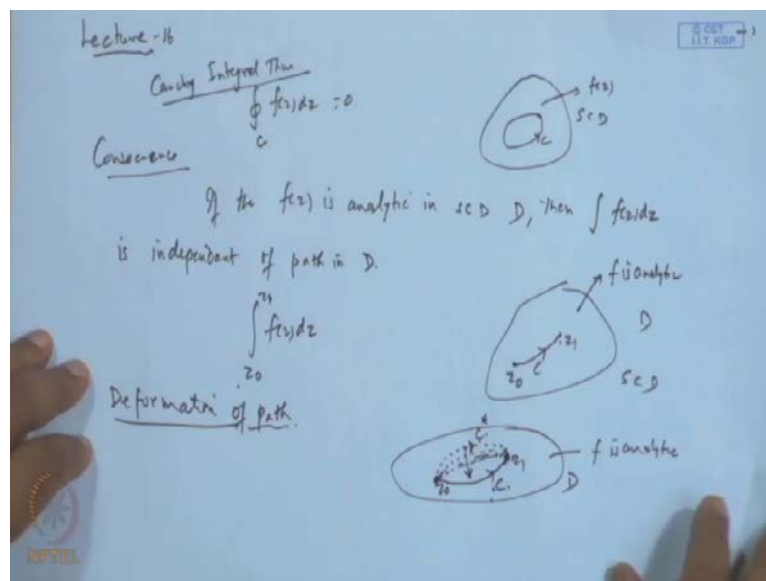 Lecture-16
© CET
I.I.T. KGP
Cauchy Integral Thm
∮ f(z)dz = 0
C
f(z)
SCD
C
Consecuence
If the f(z) is analytic in SCD D, then ∫ f(z)dz
is independent of path in D.
z1
∫ f(z)dz
z0
f is analytic
D
z1
z0
C
SCD
Deformation of path.
C*
z1
z0
C
f is analytic
D
NPTEL